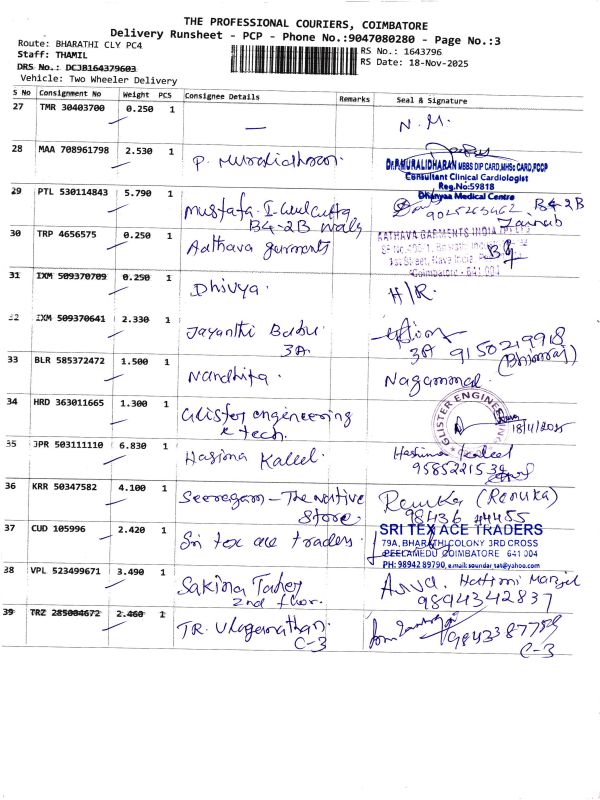 THE PROFESSIONAL COURIERS, COIMBATORE
Delivery Runsheet - PCP - Phone No.:9047080280 - Page No.:3
Route: BHARATHI CLY PC4
RS No.: 1643796
Staff: THAMIL
RS Date: 18-Nov-2025
DRS No.: DCJB164379603
Vehicle: Two Wheeler Delivery
S No Consignment No Weight PCS Consignee Details Remarks Seal & Signature
27 TMR 30403700 0.250 1 — N.M.
28 MAA 708961798 2.530 1 P. Muralidharan.
Dr.P.MURALIDHARAN MBBS DIP CARD,MHSc CARD,FCCP
Consultant Clinical Cardiologist
Reg.No:59818
Dhanyaa Medical Centre
29 PTL 530114843 5.790 1 Mustafa. I
B4-2B
B4-2B
Zainab
30 TRP 4656575 0.250 1 Aathava garments
AATHAVA GARMENTS INDIA
Coimbatore - 641 004
31 IXM 509370709 0.250 1 Dhivya. H/R.
32 IXM 509370641 2.330 1 Jayanthi Babu
3A
3A 9150219918
(Bhimraj)
33 BLR 585372472 1.500 1 Nandhita. Nagammal
34 HRD 363011665 1.300 1 Glister engineering
& tech.
GLISTER ENGINEERING
18/11/2025
35 JPR 503111110 6.830 1 Hasina Kaleel. Hashina Kaleel
36 KRR 50347582 4.100 1 Seeragam - The native
Store.
Renuka (Renuka)
98436 44455
37 CUD 105996 2.420 1 Sri tex ace traders.
SRI TEX ACE TRADERS
79A, BHARATHI COLONY 3RD CROSS
PEELAMEDU COIMBATORE 641 004
PH: 98942 89790, e.mail: soundar_tat@yahoo.com
38 VPL 523499671 3.490 1 Sakina Taher
2nd floor.
Hatimi Manzil
9894342837
39 TRZ 285004672 2.460 1 TR. Ulaganathan.
C-3
C-3